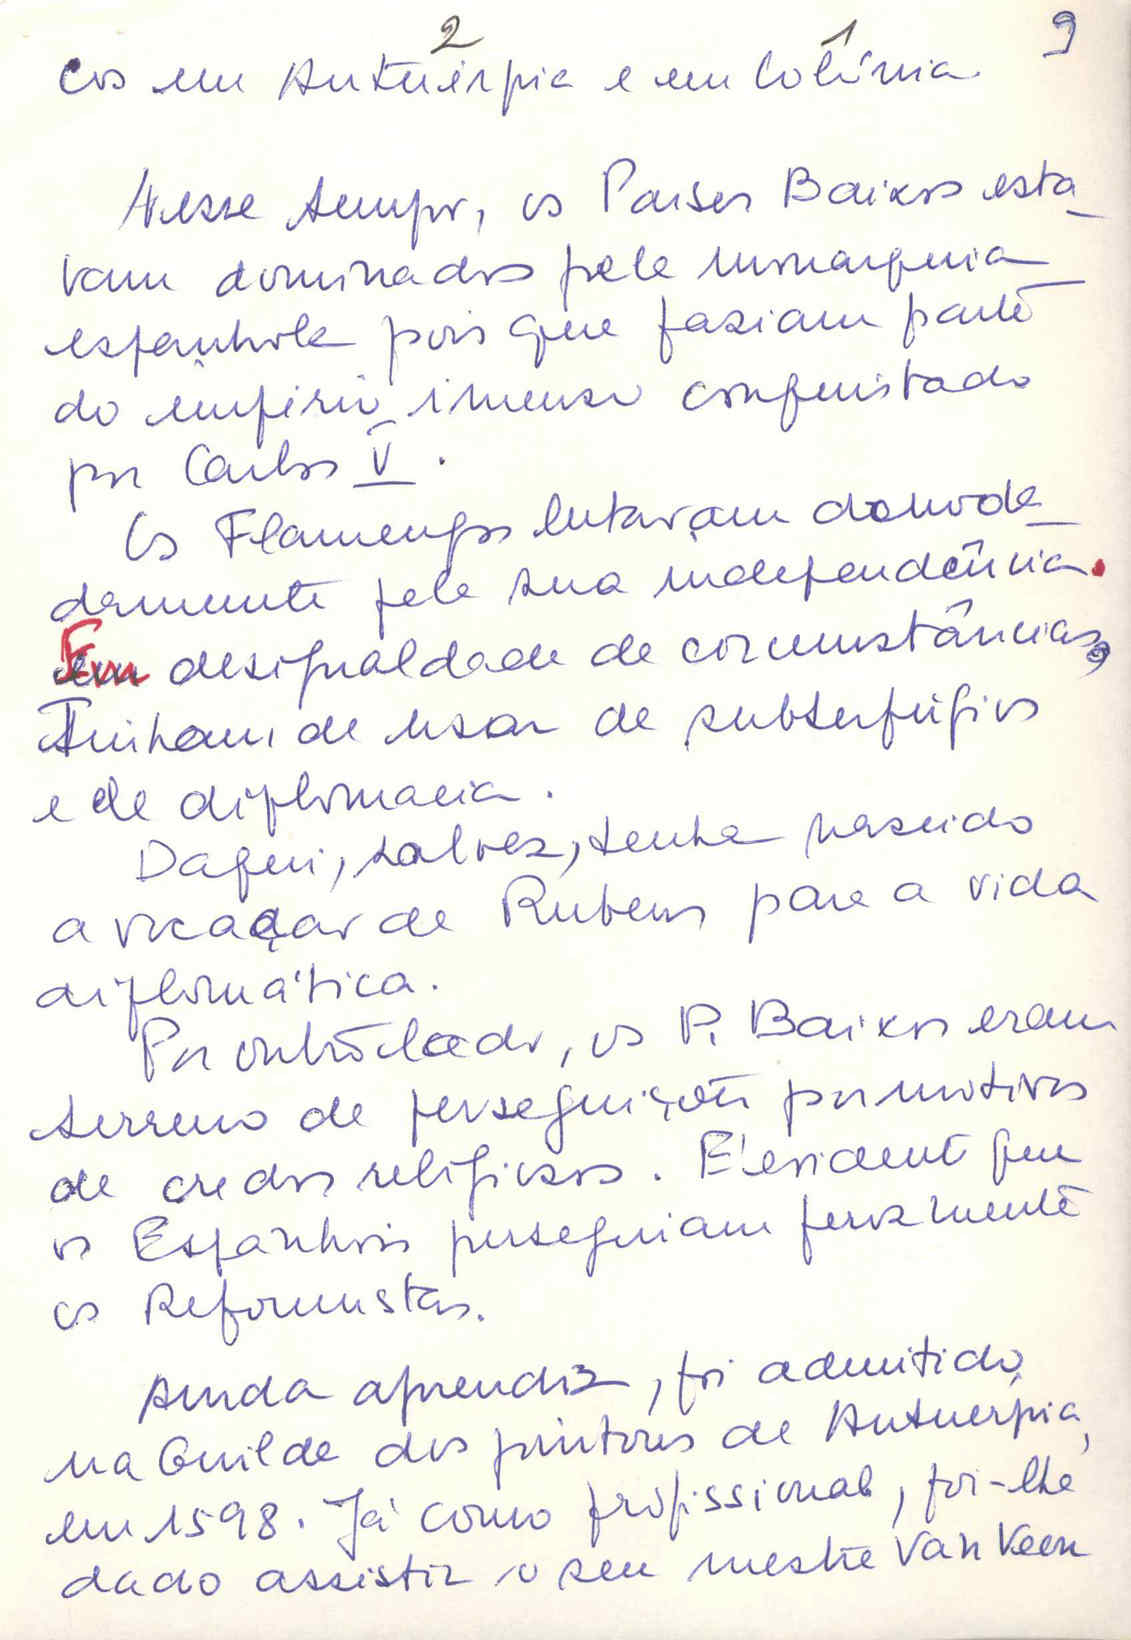 2 1 9
cos em Antuérpia e em Colónia.
Nesse tempo, os Paises Baixos esta_
vam dominados pela monarquia
espanhola pois que faziam parte
do império imenso conquistado
por Carlos V.
Os Flamengos lutavam denoda_
damente pela sua independência.
Em desigualdade de circunstâncias,
Tinham de usar de subterfúgios
e de diplomacia.
Daqui, talvez, tenha nascido
a vocação de Rubens para a vida
diplomática.
Por outro lado, os P. Baixos eram
terreno de perseguições por motivos
de credos religiosos. É evidente que
os Espanhois perseguiam ferozmente
os Reformistas.
Ainda aprendiz, foi admitido,
na Guilde dos pintores de Antuérpia,
em 1598. Já como profissional, foi-lhe
dado assistir o seu mestre Van Veen